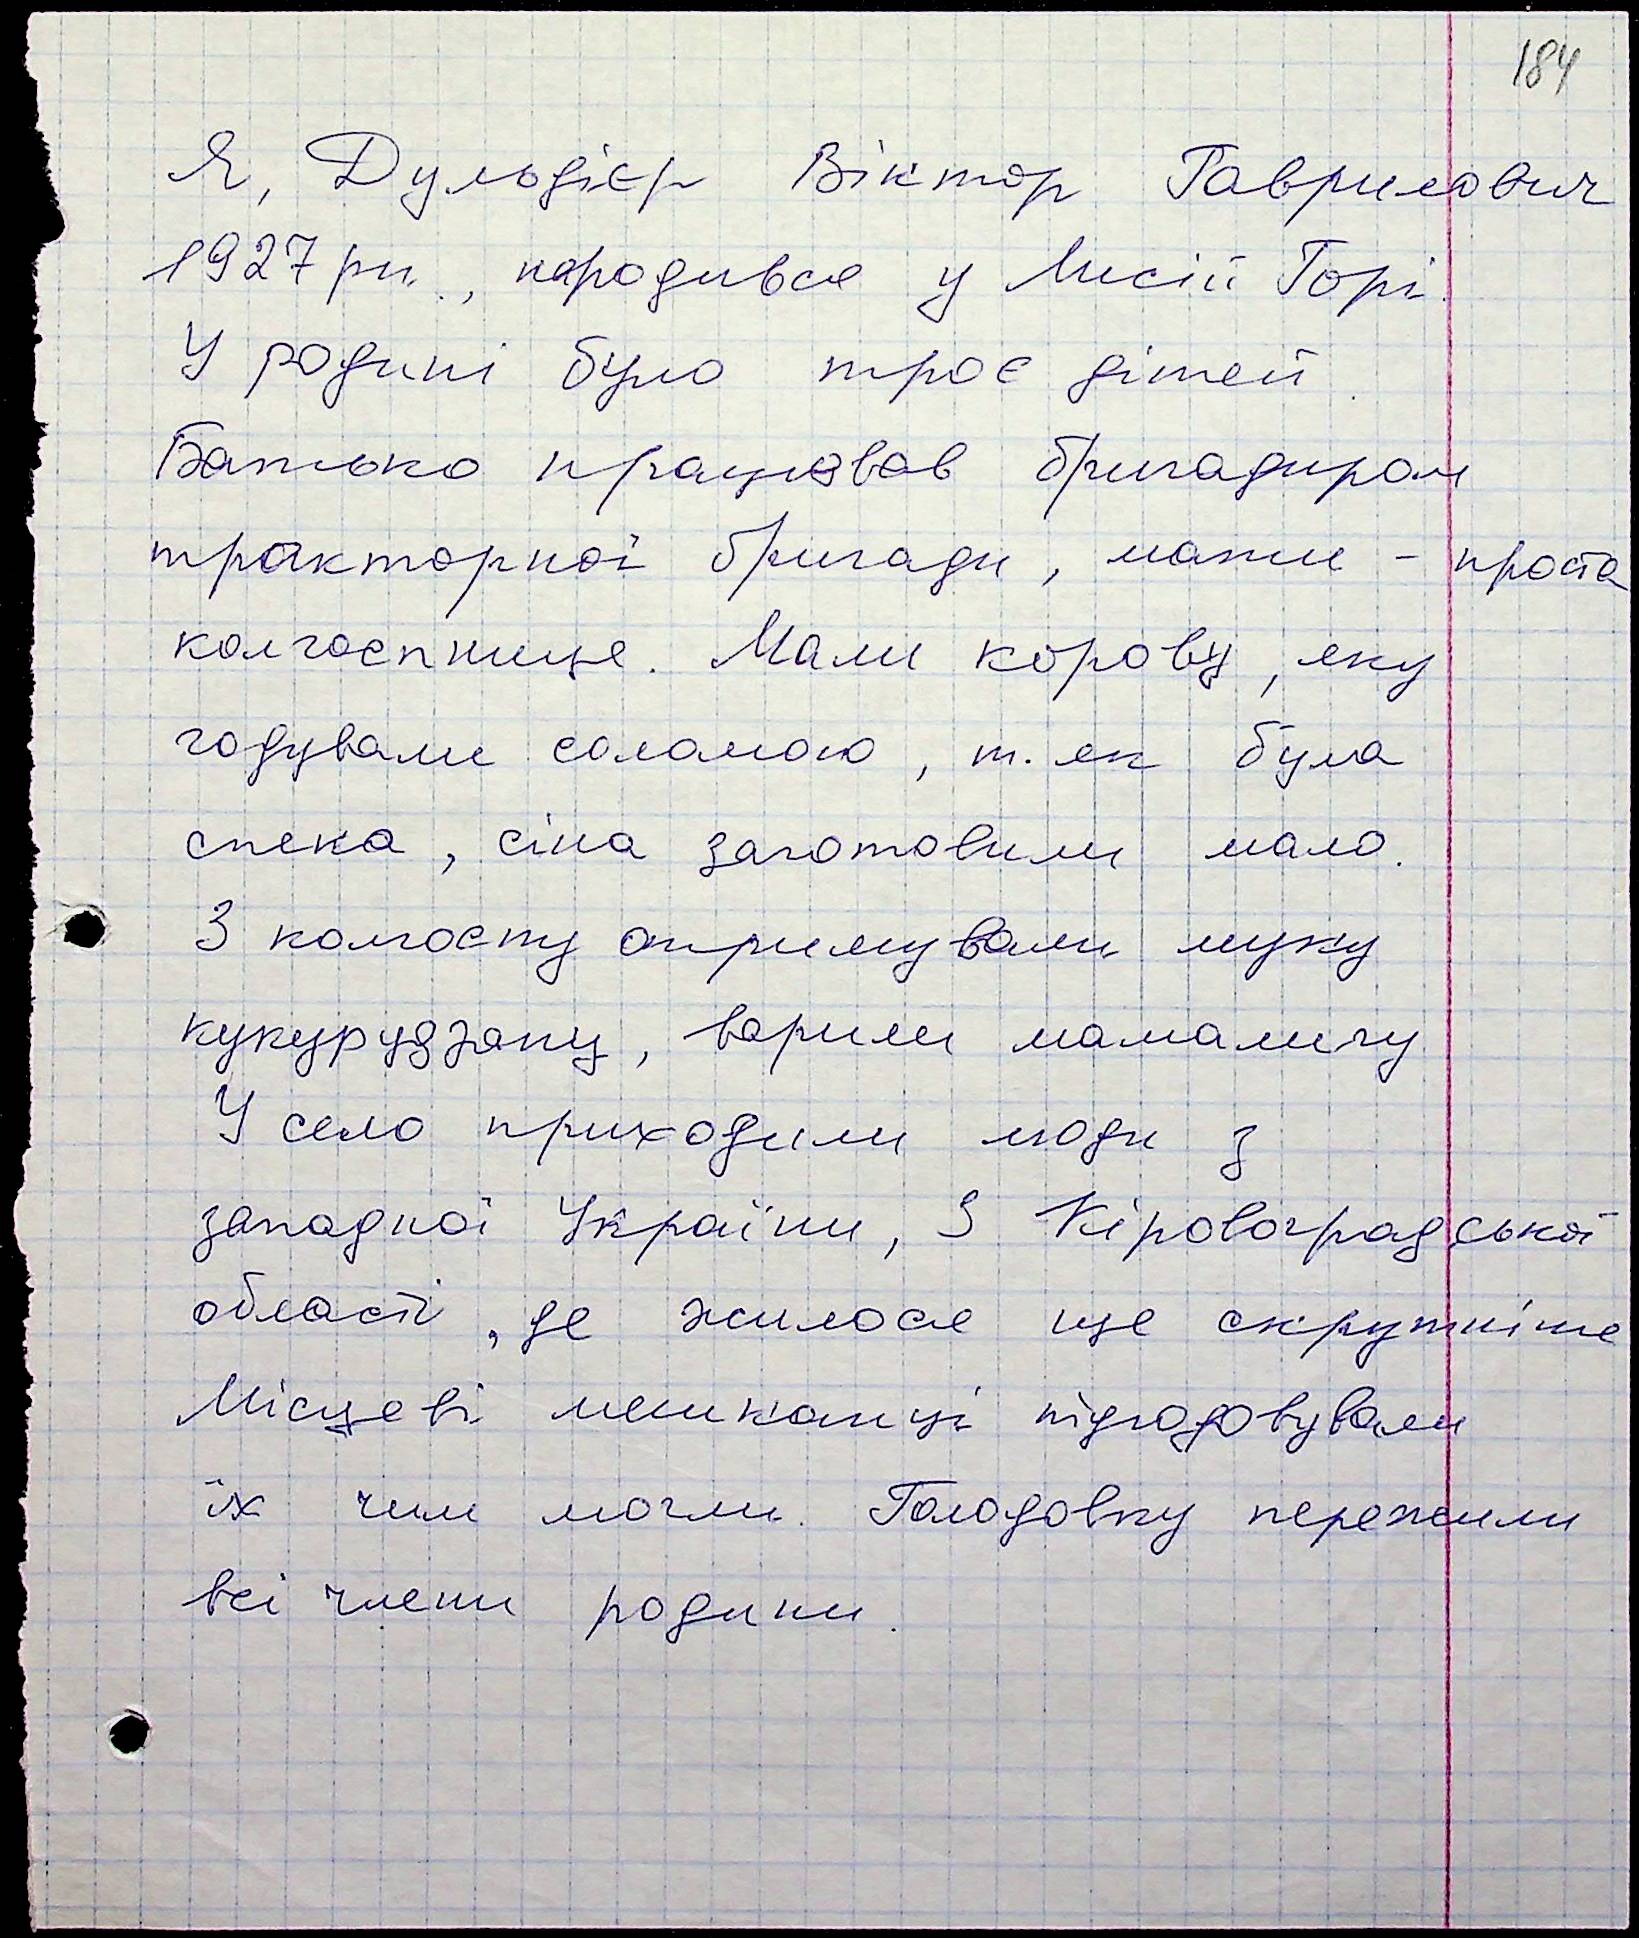 184
Я, Дульдієр Віктор Гаврилович
1927 рн., народився у Лисій Горі.
У родині було троє дітей.
Батько працював бригадиром
тракторної бригади, мати – проста
колгоспниця. Мали корову, яку
годували соломою, т. як була
спека, сіна заготовили мало.
З колгоспу отримували муку
кукурудзяну, варили мамалигу
У село приходили люди з
западної України, з Кіровоградської
області, де жилося ще скрутніше
Місцеві мешканці підгодовували
їх чим могли. Голодовку пережили
всі члени родини.